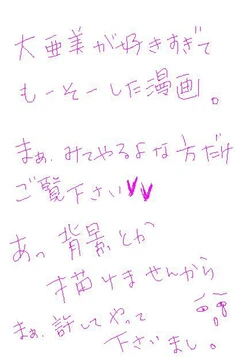 大亜美が好きすぎて
もーそーした漫画。
まぁ、みてやるよな方だけ
ご覧下さい
あっ背景とか
描けませんから
まぁ、許してやって
下さいまし。